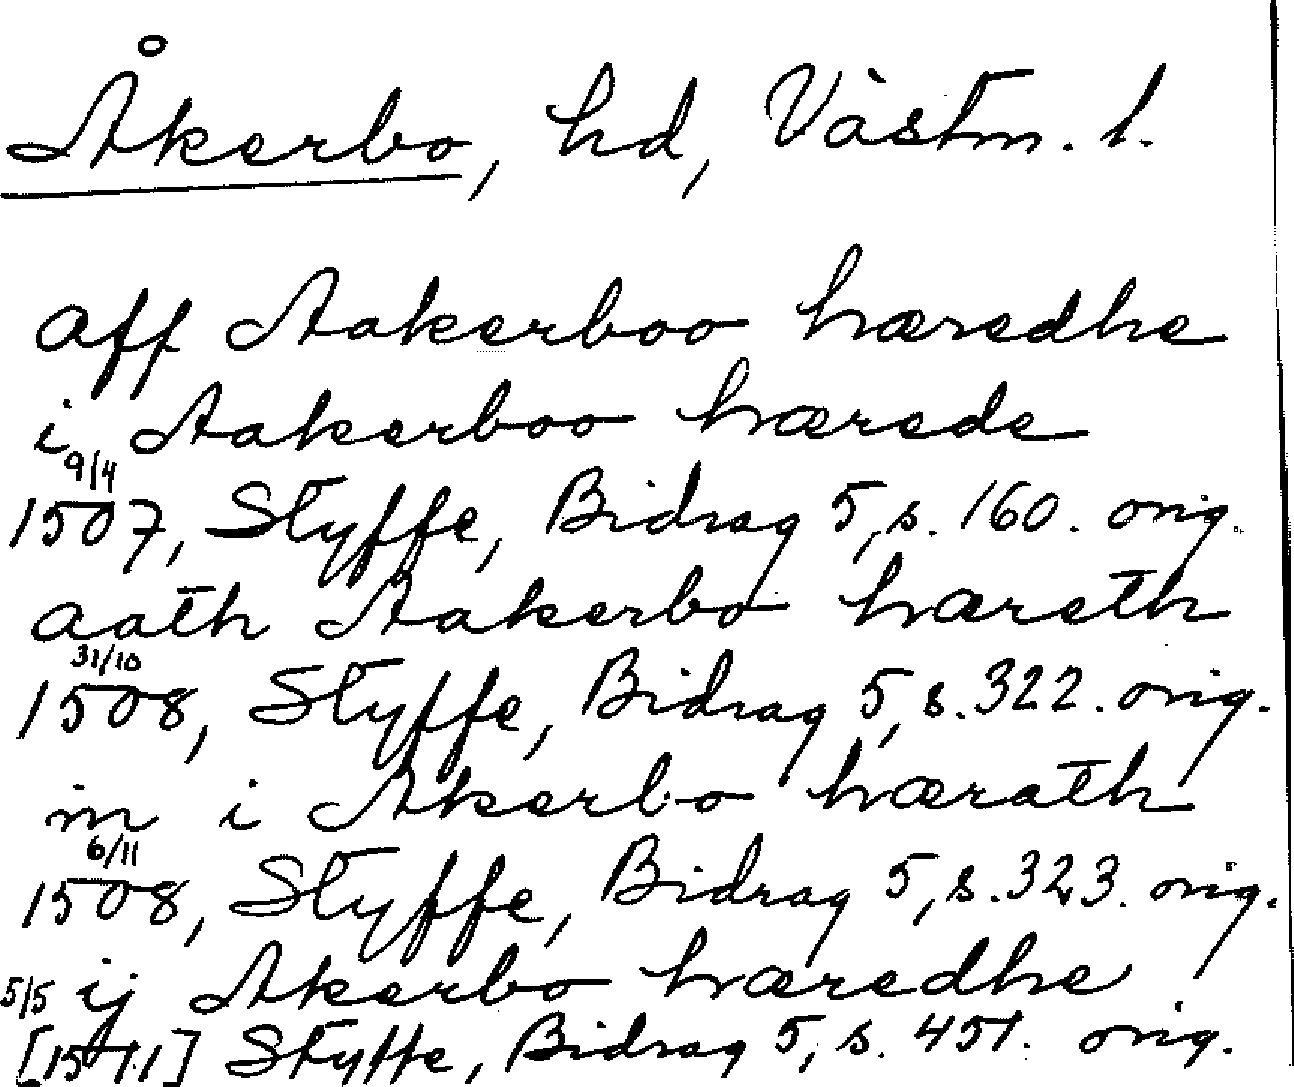 Åkerbo, hd, Västm. l.
aff Aakerboo hæredhe
i Aakerboo hærede
9/4
1507, Styffe, Bidrag 5, s. 160. orig.
aath Aakerbo hæreth
31/10
1508, Styffe, Bidrag 5, s. 322. orig.
in i Akerbo hærath
6/11
1508, Styffe, Bidrag 5, s. 323. orig.
5/5 ij Akerbo hæredhe
[1511] Styffe, Bidrag 5, s. 451. orig.